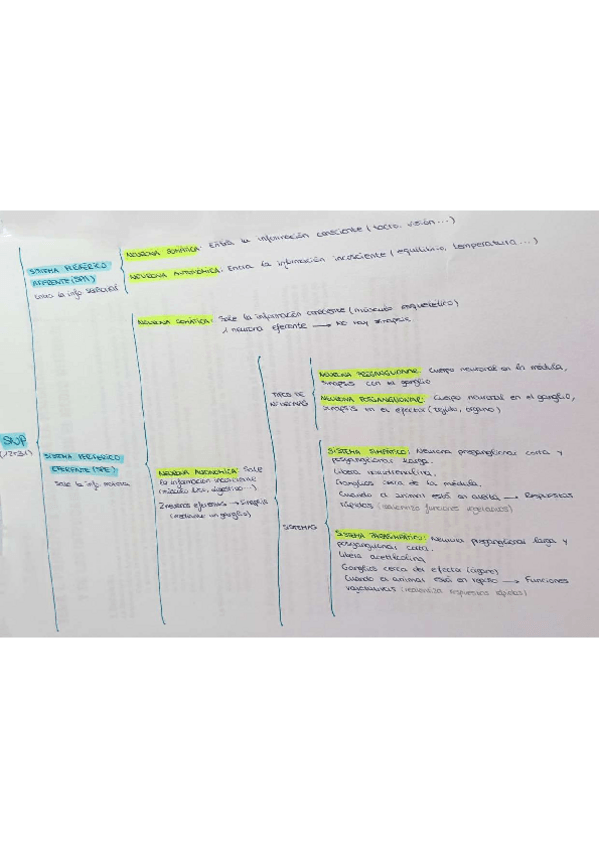 NEURONA SOMÁTICA: Entra la información consciente (tacto, visión...)
SISTEMA PERIFÉRICO
AFERENTE (SPA)
entra la info sensorial
NEURONA AUTONÓMICA: Entra la información incosciente (equilibrio, temperatura...)
NEURONA SOMÁTICA: Sale la información consciente (músculo esquelético)
1 neurona eferente → NO hay sinapsis
TIPOS DE
NEURONAS
NEURONA PREGANGLIONAR: Cuerpo neuronal en la médula,
sinapsis con el ganglio
NEURONA POSGANGLIONAR: Cuerpo neuronal en el ganglio,
sinapsis en el efector (tejido, órgano)
SNP
(12+31)
SISTEMA PERIFÉRICO
EFERENTE (SPE)
Sale la info motora
NEURONA AUTONÓMICA: Sale
la información incosciente
(músculo liso, digestivo...)
2 neuronas eferentes → Sinapsis
(mediante un ganglio)
SISTEMAS
SISTEMA SIMPÁTICO: Neurona preganglionar corta y
posganglionar larga.
Libera noradrenalina.
Ganglios cerca de la médula.
Cuando el animal está en alerta → Respuestas
rápidas (ralentiza funciones vegetativas)
SISTEMA PARASIMPÁTICO: Neurona preganglionar larga y
posganglionar corta.
Libera acetilcolina
Ganglios cerca del efector (órgano)
Cuando el animal está en reposo → Funciones
vegetativas (ralentiza respuestas rápidas)